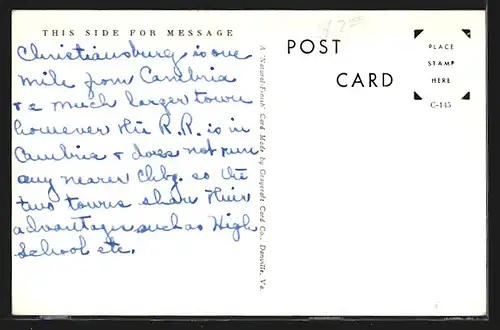 THIS SIDE FOR MESSAGE
Christiansburg is one
mile from Cambria
+ a much larger town
however the R.R. is in
Cambria + does not run
any nearer Chbg. so the
two towns share their
advantages such as High
School etc.
A "Natural-Finish" Card Made by Graycraft Card Co., Danville, Va.
$2.00
POST
CARD
PLACE
STAMP
HERE
C-145